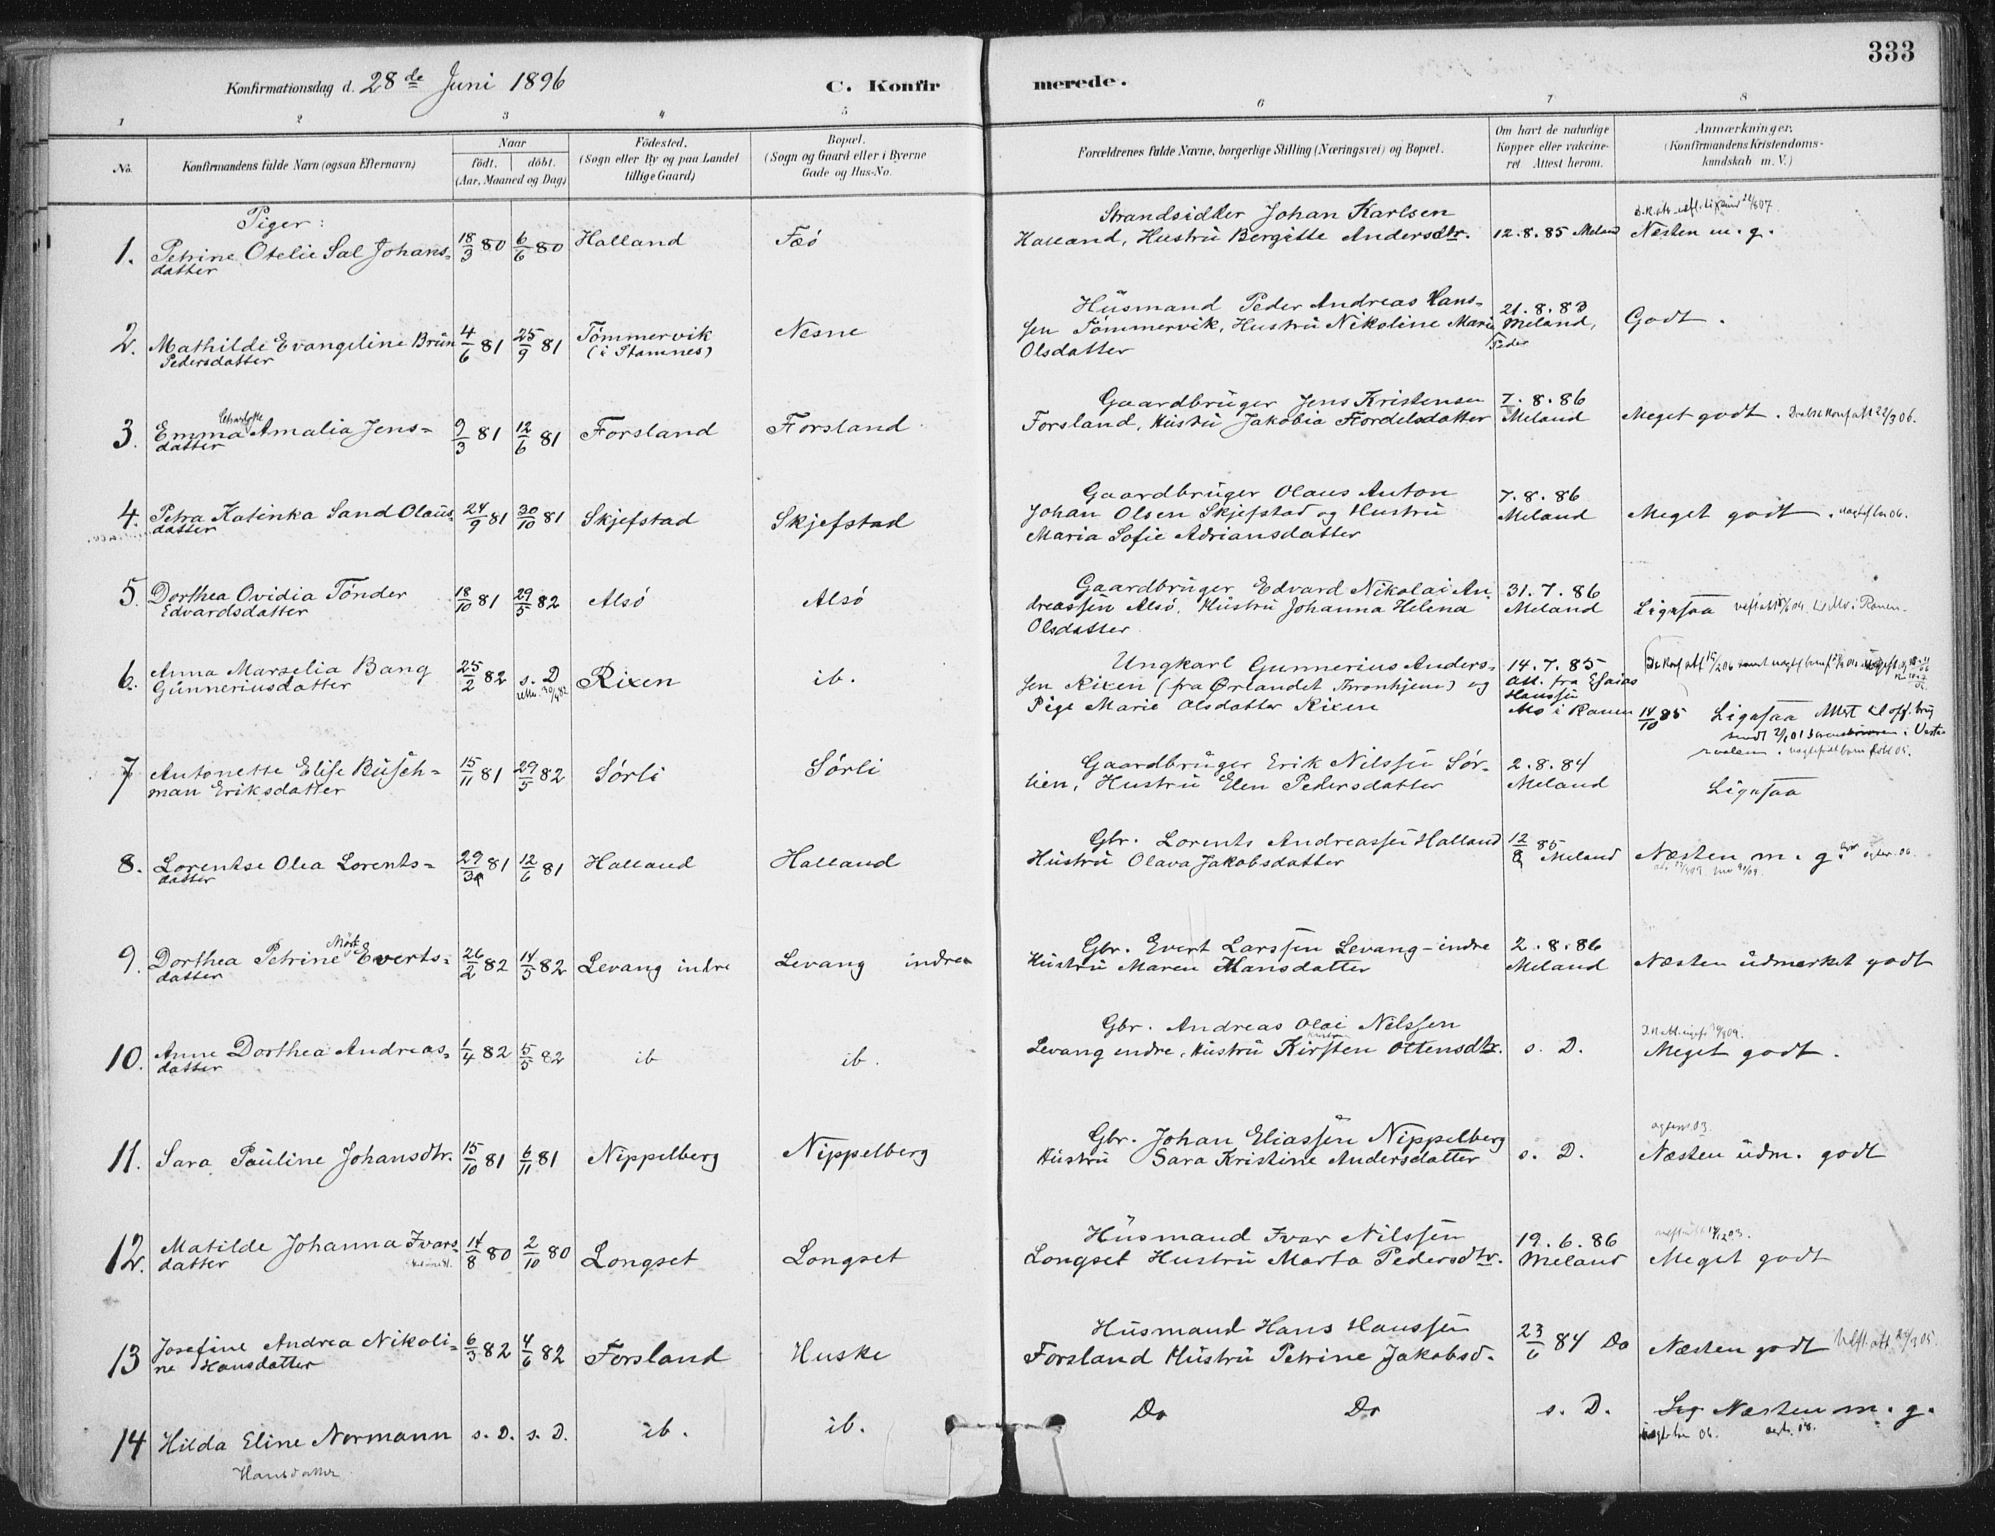 333
Konfirmationsdag d. 28de Juni 1896
C. Konfirmerede.
1 2 3 4 5 6 7 8
No.
Konfirmandens fulde Navn (ogsaa Efternavn)
Naar
födt. döbt.
(Aar, Maaned og Dag)
Födested.
(Sogn eller By og paa Landet
tillige Gaard)
Bopæl.
(Sogn og Gaard eller i Byerne
Gade og Hus-No.
Forældrenes fulde Navne, borgerlige Stilling (Næringsvei) og Bopæl.
Om havt de naturlige
Kopper eller vakcine-
ret Attest herom.
Anmærkninger.
(Konfirmandens Kristendoms-
kundskab m. V.)
Piger:
1. Petrine Otelie Sal Johans-
datter
18/3 80 6/6 80 Halland Fæö
Strandsidder Johan Karlsen
Halland, Hustru Bergitte Andersdtr.
12.8.85 Meland
Næsten m. g.
2. Mathilde Evangeline Brun
Pedersdatter
4/6 81 25/9 81 Tömmervik
(i Stamnes)
Nesne
Husmand Peder Andreas Hans-
sen Tömmervik, Hustru Nikoline Marie
Olsdatter
Peder
21.8.83
Meland,
Godt.
3. Emma Charlotte Amalia Jens-
datter
9/3 81 12/6 81 Forsland Forsland
Gaardbruger Jens Kristensen
Forsland, Hustru Jakobia Fordelsdatter
7.8.86
Meland
Meget godt. 22/3 06.
4. Petra Katinka Sand Olaus-
datter
24/9 81 30/10 81 Skjefstad Skjefstad
Gaardbruger Olaus Anton
Johan Olsen Skjefstad og Hustru
Maria Sofie Adriansdatter
7.8.86
Meland
Meget godt. 06.
5. Dorthea Ovidia Tönder
Edvardsdatter
18/10 81 29/5 82 Alsö Alsö
Gaardbruger Edvard Nikolai An-
dreassen Alsö, Hustru Johanna Helena
Olsdatter
31.7.86
Meland
Ligesaa
6. Anna Marselia Bang
Gunneriusdatter
25/2 82 s. D Rixen ib.
Ungkarl Gunnerius Anders-
sen Rixen (fra Ørlandet Thronhjem) og
Pige Marie Olsdatter Rixen
14.7.85
Att. fra Esaias
Hanssen
Mo i Ranen
14/10 85
Ligesaa
7 Antonette Elise Busch-
man Eriksdatter
15/11 81 29/5 82 Sörli Sörli
Gaardbruger Erik Nilssen Sör-
lien, Hustru Elen Pedersdatter
2.8.84
Meland
Ligesaa
8. Lorentse Olea Lorents-
datter
29/3 81 12/6 81 Halland Halland
Gbr. Lorents Andreassen Halland
Hustru Olava Jakobsdatter
12/8 85
Meland
Næsten m. g.
9. Dorthea Petrine Mörk Everts-
datter
26/2 82 14/5 82 Levang indre Levang indre
Gbr. Evert Larssen Levang-indre
Hustru Maren Hansdatter
2.8.86
Meland
Næsten udmerket godt
10. Anne Dorthea Andreas-
datter
1/4 82 5/5 82 ib ib.
Gbr. Andreas Olai Nilssen
Levang indre, Hustru Kirsten Ottensdtr.
s. D.
Meget godt.
11. Sara Pauline Johansdtr.
15/10 81 6/11 81 Nippelberg Nippelberg
Gbr. Johan Eliassen Nippelberg
Hustru Sara Kristine Andersdatter
s. D.
Næsten udm. godt
12. Matilde Johanna Ivars-
datter
14/8 80 2/10 80 Longset Longset
Husmand Ivar Nilssen
Longset Hustru Marta Pedersdtr.
19.6.86
Meland
Meget godt
13 Josefine Andrea Nikoli-
ne Hansdatter
6/3 82 4/6 82 Forsland Huske
Husmand Hans Hanssen
Forsland Hustru Petrine Jakobsd.
23/6 84 Do
Næsten godt
14 Hilda Eline Normann
Hansdatter
s. D. s. D. ib. ib.
Do Do
s. D.
Næsten m. g.